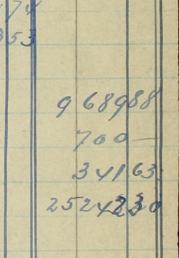 74
353
9 68988
700 —
34163
2524230